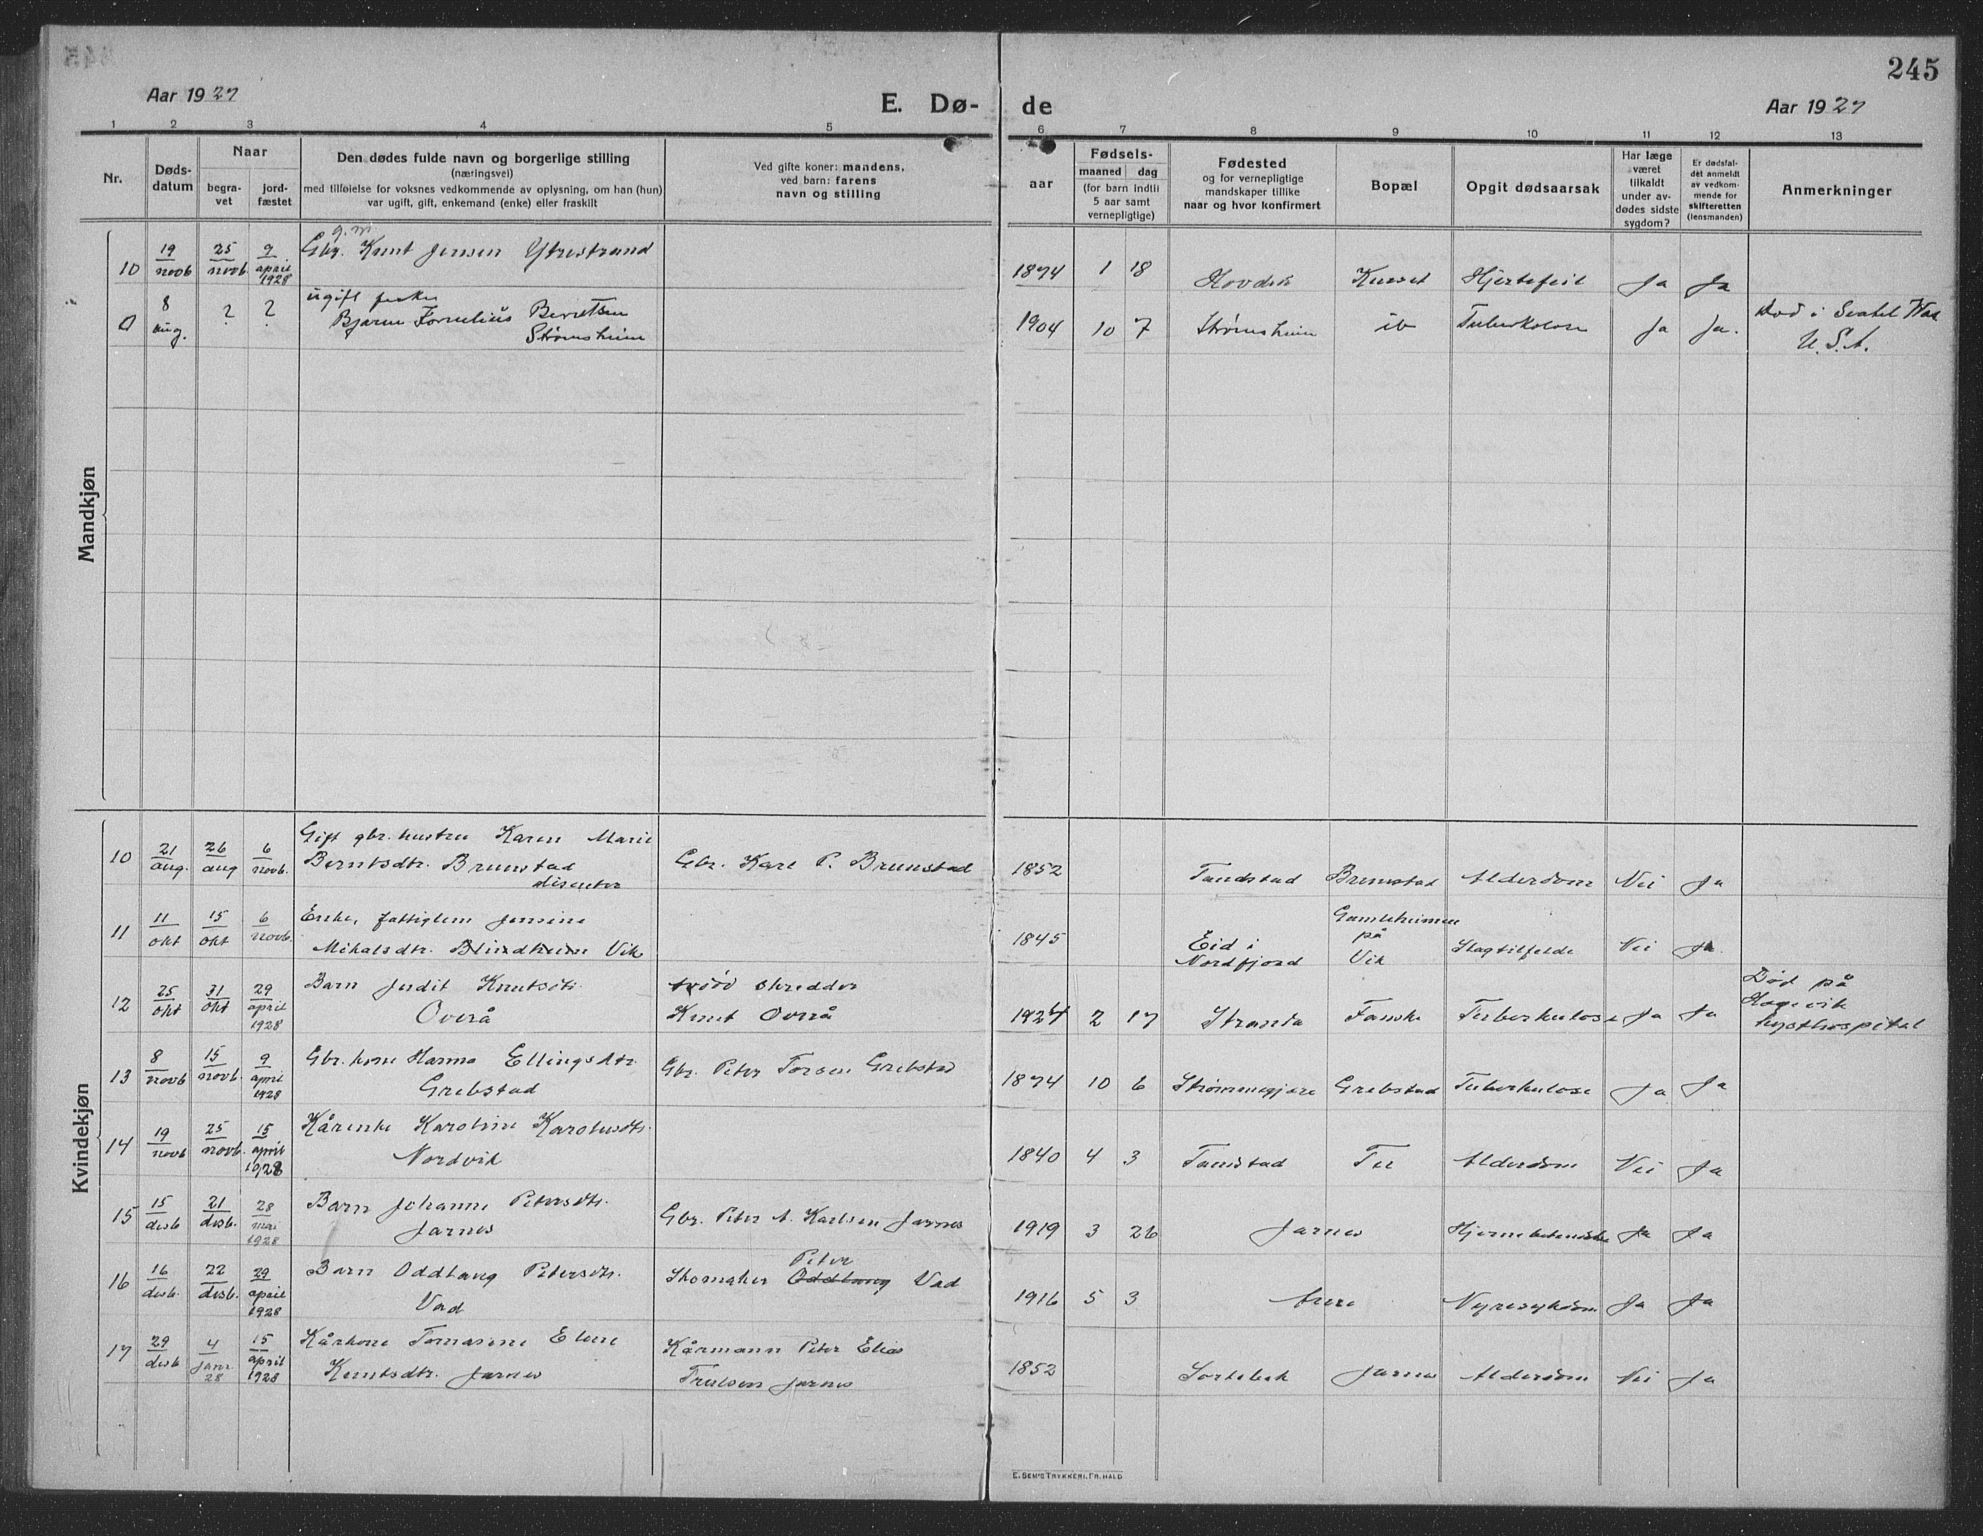 245
Aar 1927
E. Dø-
de
Aar 1927
1 2 3 4 5 6 7 8 9 10 11 12 13
Nr.
Døds-
datum
Naar
begra-
vet
jord-
fæstet
Den dødes fulde navn og borgerlige stilling
(næringsvei)
med tilføielse for voksnes vedkommende av oplysning, om han (hun)
var ugift, gift, enkemand (enke) eller fraskilt
Ved gifte koner: mandens,
ved barn: farens
navn og stilling
aar
Fødsels-
maaned dag
(for barn indtil
5 aar samt
vernepligtige)
Fødested
og for vernepligtige
mandskaper tillike
naar og hvor konfirmert
Bopæl
Opgit dødsaarsak
Har læge
været
tilkaldt
under av-
dødes sidste
sygdom?
Er dødsfal-
det anmeldt
av vedkom-
mende for
skifteretten
(lensmanden)
Anmerkninger
Mandkjøn
g.m.
10 19 novb 25 novb. 9 april 1928 Gbr. Knut Jensen Ytrestrand 1874 1 18 Hovden Hjertefeil Ja Ja
8 aug. ? ? ugift fisker
Bjarne Kornelius Berntsen
Strømsheim 1904 10 7 Strømsheim ib Tuberkolose Ja Ja. Død i Seatel
U.S.A.
Kvindekjøn
10 21 aug. 26 aug 6 novb. Gift gbr. hustru Karen Marie
Berntsdtr. Brunstad
disenter Gbr. Karl P. Brunstad 1852 Tandstad Brunstad Alderdom Nei Ja
11 11 okt 15 okt 6 novb. Enke, fattiglem Jensine
Mikalsdtr. Blindheim Vik 1845 Eid i
Nordfjord Gamleheimen
på
Vik Slagtilfelde Nei Ja
12 25 okt 31 okt 29 april 1928 Barn Judit Knutsdtr.
Overå skredder
Knut Overå 1924 2 17 Stranda Tuberkulose Ja Ja Død på
Hagevik
kysthospital
13 8 novb 15 novb. 9 april 1928 Gbr. kone Harma Ellingsdtr.
Grebstad Gbr. Peter Grebstad 1874 10 6 Strømmegjære Grebstad Tuberkulose Ja Ja
14 19 novb 25 novb. 15 april 1928 Kårenke Karoline Karolusdtr.
Nordvik 1840 4 3 Tandstad Alderdom Nei Ja
15 15 desb 21 desb. 28 mai 1928 Barn Johanne Petersdtr.
Jarnes Gbr. Peter A. Karlsen Jarnes 1919 3 26 Jarnes Hjernebetendelse Ja Ja
16 16 desb. 22 desb. 29 april 1928 Barn Oddlaug Petersdtr.
Vad Skomaker Oddlaug Peter Vad 1916 5 3 Nyresykdom Ja Ja
17 29 desb 4 janr 28 15 april 1928 Kårkone Tomasine Eline
Knutsdtr. Jarnes Kårmann Peter Elias
Trulsen Jarnes 1852 Sortebek Jarnes Alderdom Nei Ja
E. SEM'S TRYKKERI, FR. HALD